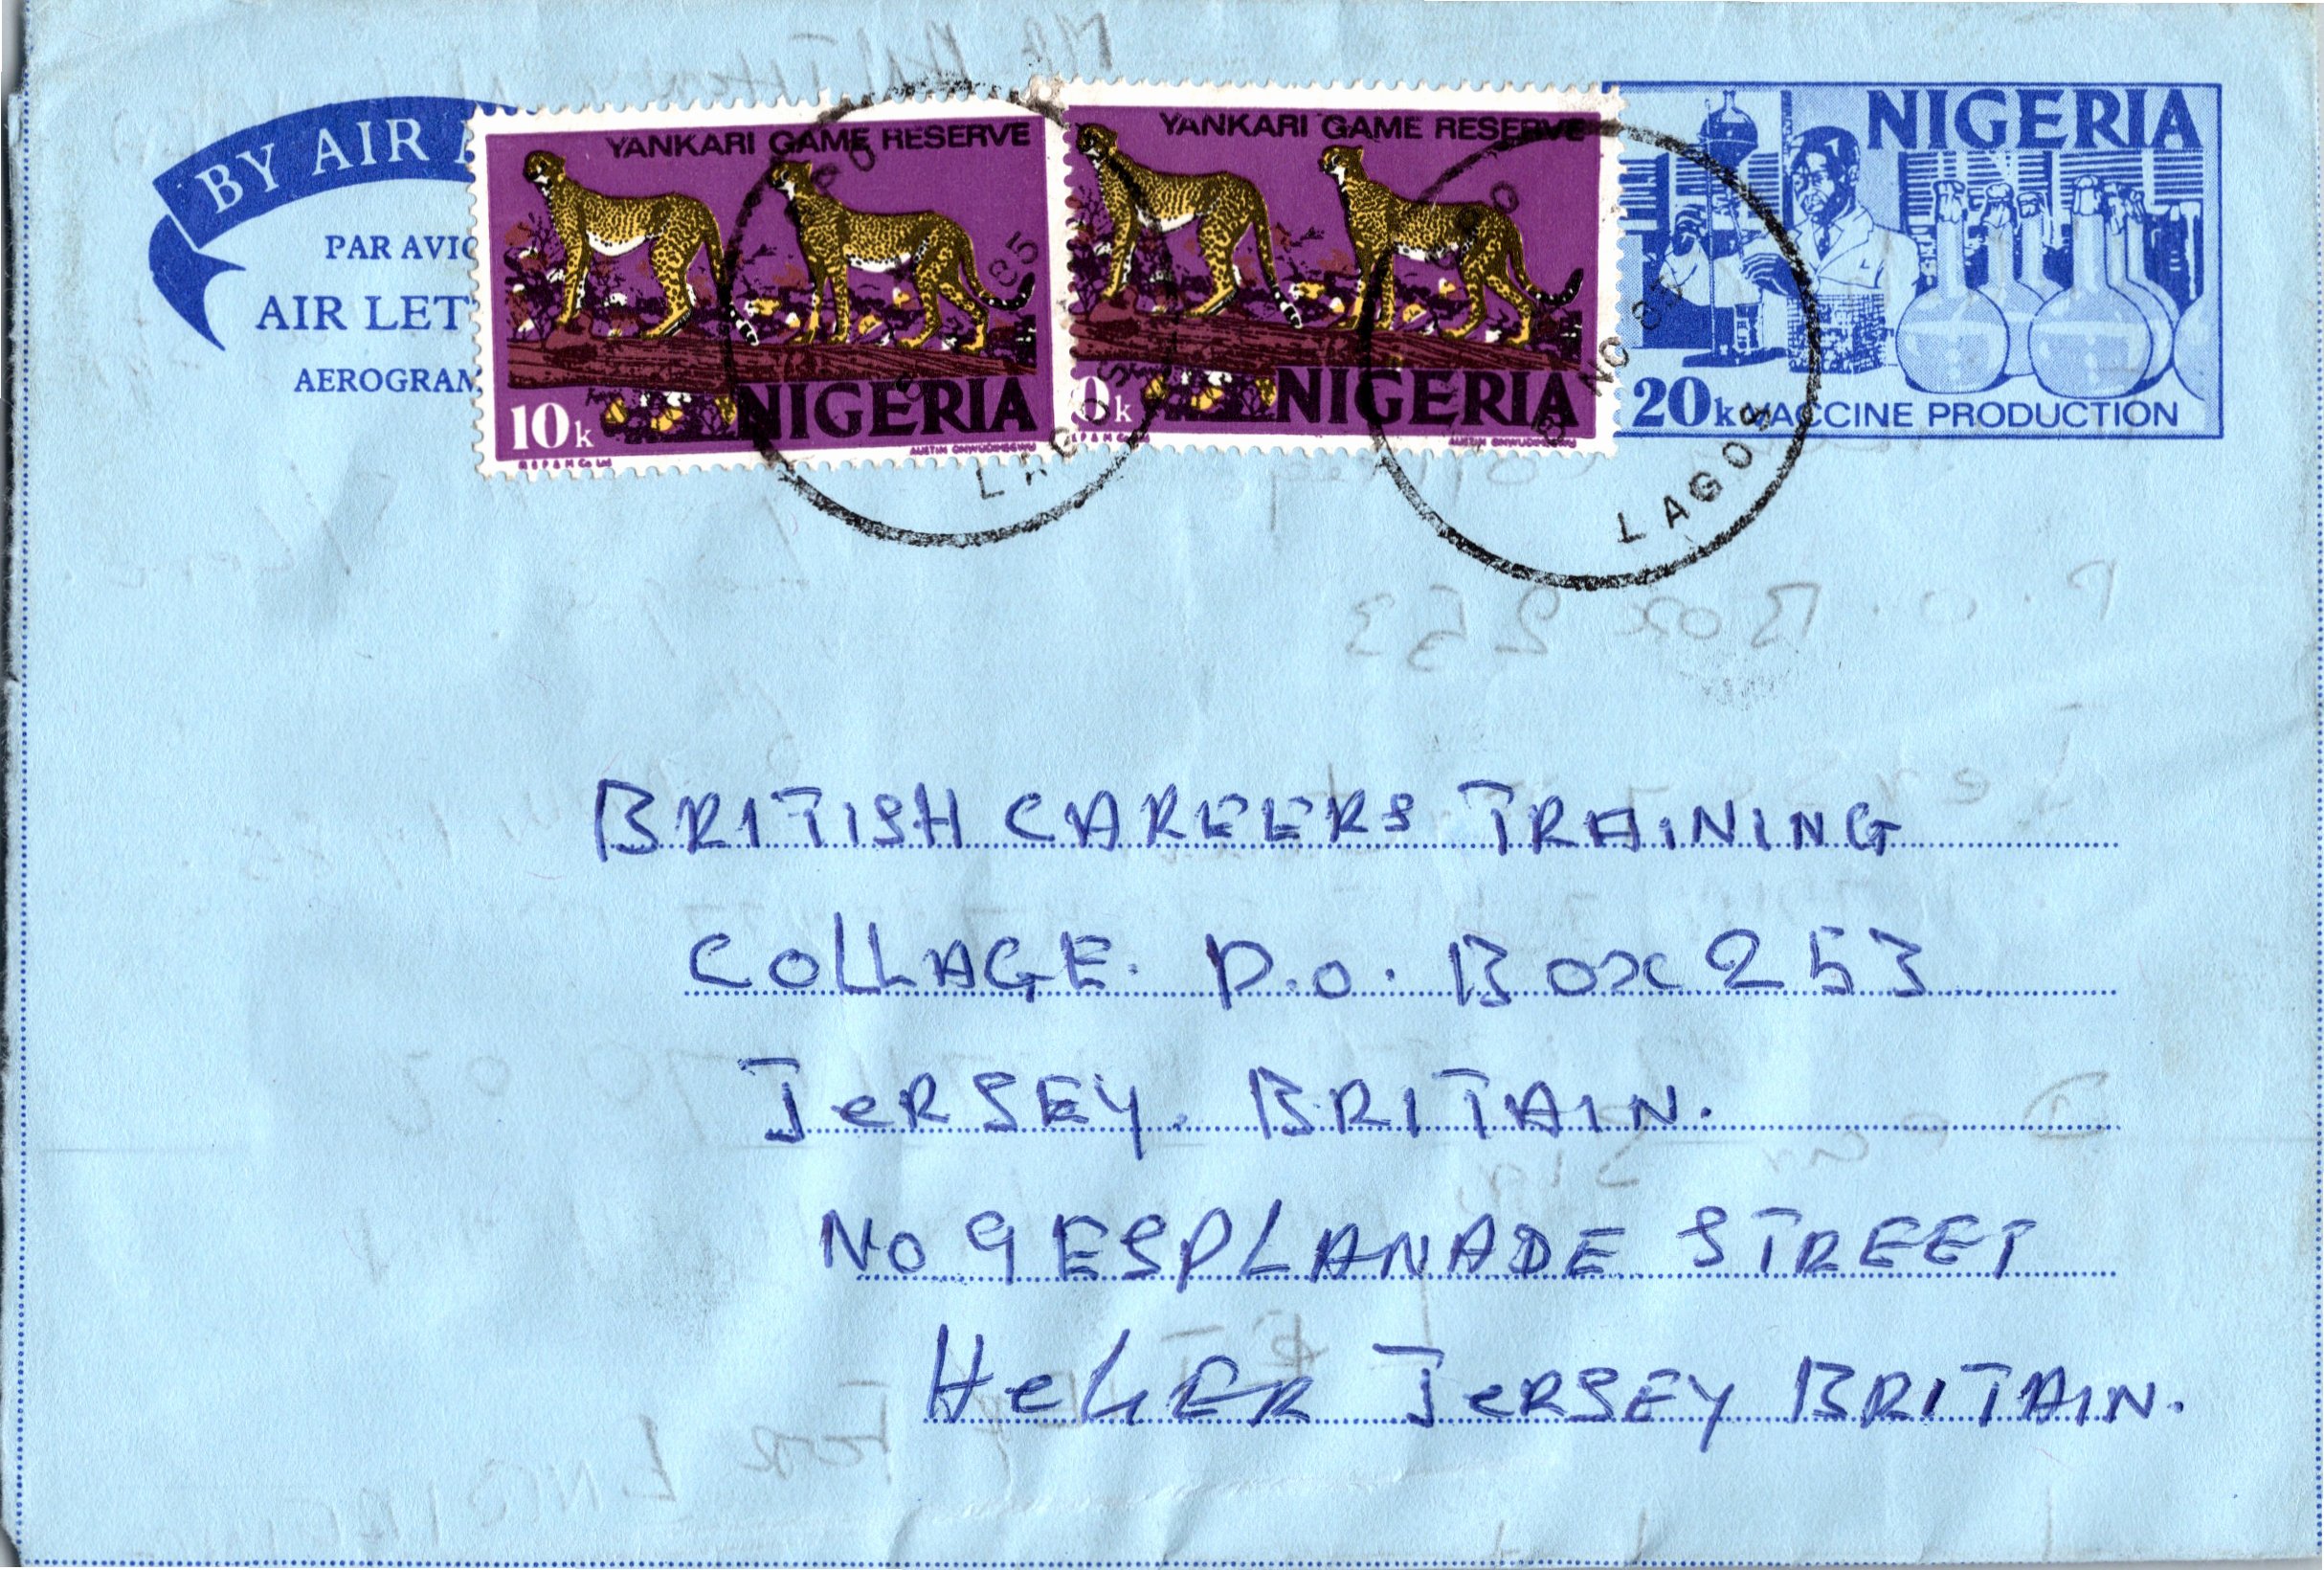 BY AIR
PAR AVIO
AIR LET
AEROGRAM
YANKARI GAME RESERVE
10k NIGERIA
AUSTIN ONWUDIMEGWU
YANKARI GAME RESERVE
0k NIGERIA
AUSTIN ONWUDIMEGWU
NIGERIA
20k VACCINE PRODUCTION
85
LAGOS
NO 85
LAGOS
BRITISH CAREERS TRAINING
COLLAGE. P.O. BOX 253
JeRSEY. BRITAIN.
No 9 ESPLANADE STREET
HeLIER JeRSEY BRITAIN.
P.O. Box 253